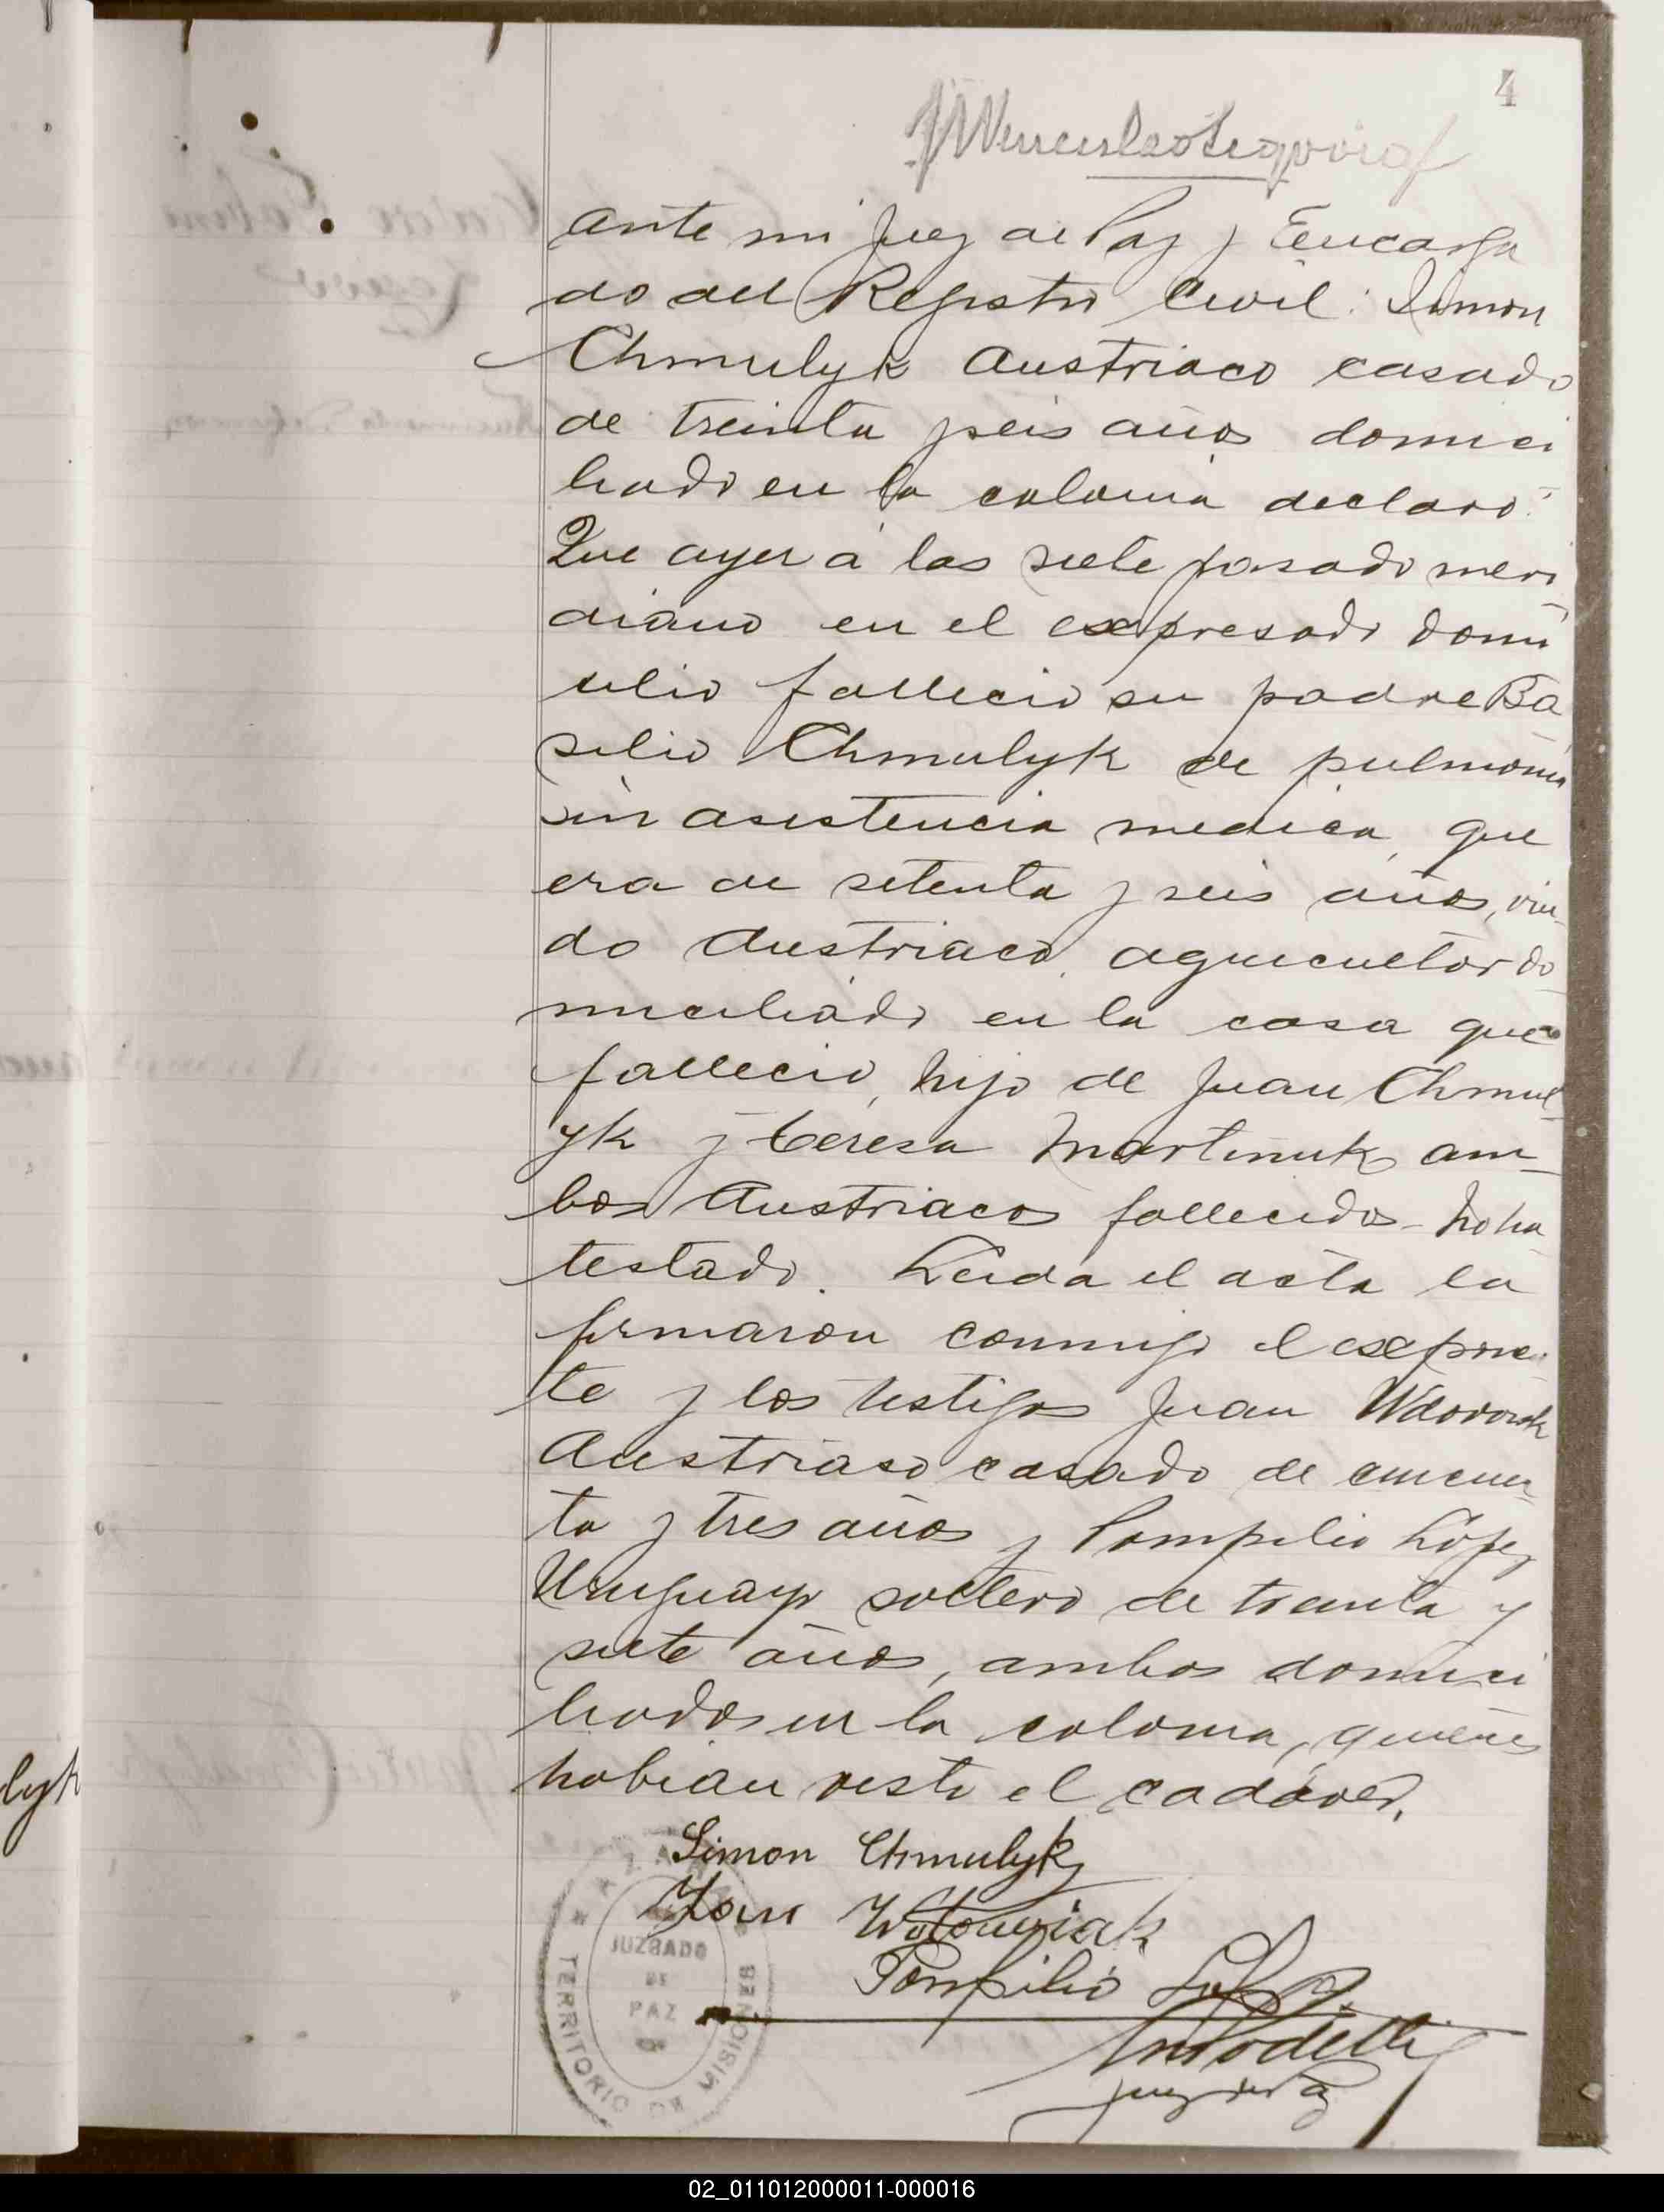 4
ante mi Juez de Paz y Encarga
do del Registro Civil: Simon
Chmulyk Austriaco casado
de treinta seis años domici
liado en la colonia declaró:
Que ayer á las siete pasado meri
diano en el expresado domi
cilio falleció su padre Ba
silio Chmulyk de pulmonia
sin asistencia medica, que
era de setenta y seis años, viu-
do Austriaco, agricultor do-
miciliado en la casa que
falleció, hijo de Juan Chmul-
yk y teresa Martinuk am-
bos Austriacos fallecidos - No ha
testado. Leida el acta la
firmaron conmigo el exponen
te y los testigos Juan
Austriaco casado de cincuen-
ta y tres años y Pompilio López
Uruguayo soltero de treinta y
siete años, ambos domici
liados en la colonia, quienes
habian visto el cadáver.
Simon Chmulyk
Jan
Pompilio López
Juez de Paz
JUZGADO
DE
PAZ
TERRITORIO DE MISIONES
lyk
02_011012000011-000016